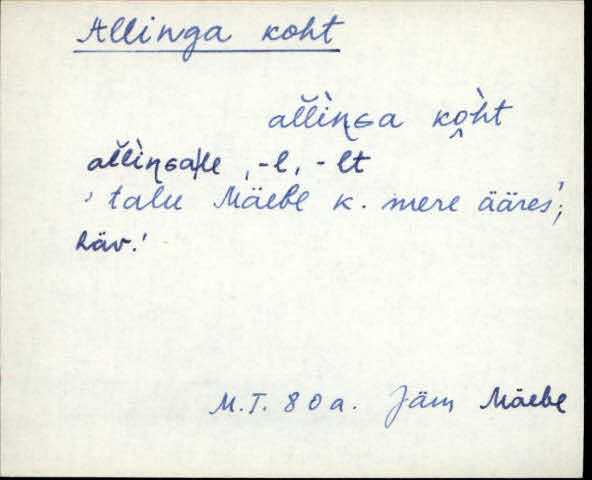 Allinga koht
al̆l̆ìŋɢa ko̭h̀t
al̆l̆ìŋɢa|le, -l, -lt
'talu Mäebe k. mere ääres';
häv.!
M.T. 80a. Jäm Mäebe